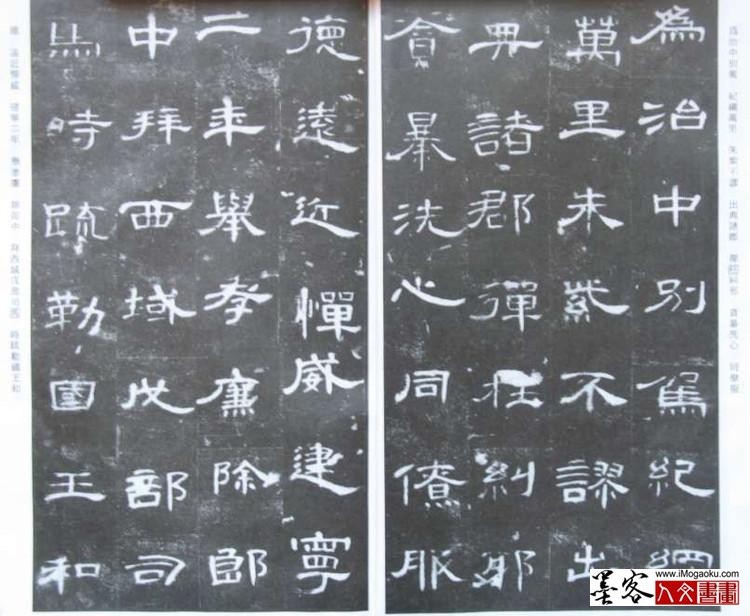 為治中別駕　紀綱萬里　朱紫不謬　出典諸郡　彈枉糾邪　貪暴洗心　同僚服
為治中別駕紀綱
萬里朱紫不謬出
典諸郡彈枉糾邪
貪暴洗心同僚服
德遠近憚威建寧
二年舉孝廉除郎
中拜西域戊部司
馬時疏勒國王和
德　遠近憚威　建寧二年　舉孝廉　除郎中　拜西域戊部司馬　時疏勒國王和
墨客
www.iMogaoku.com
人文書畫